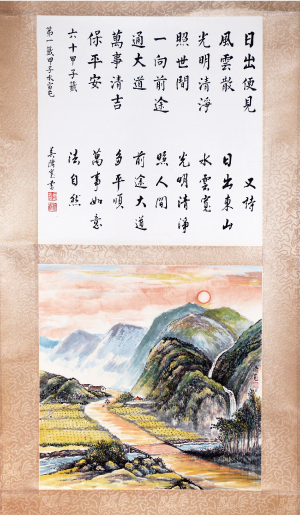 日出便見 又詩
風雲散 日出東山
光明清淨 水雲寬
照世間 光明清淨
一向前途 照人間
通大道 前途大道
萬事清吉 多平順
保平安 萬事如意
六十甲子籤 法自然
第一籤甲子水宜 書